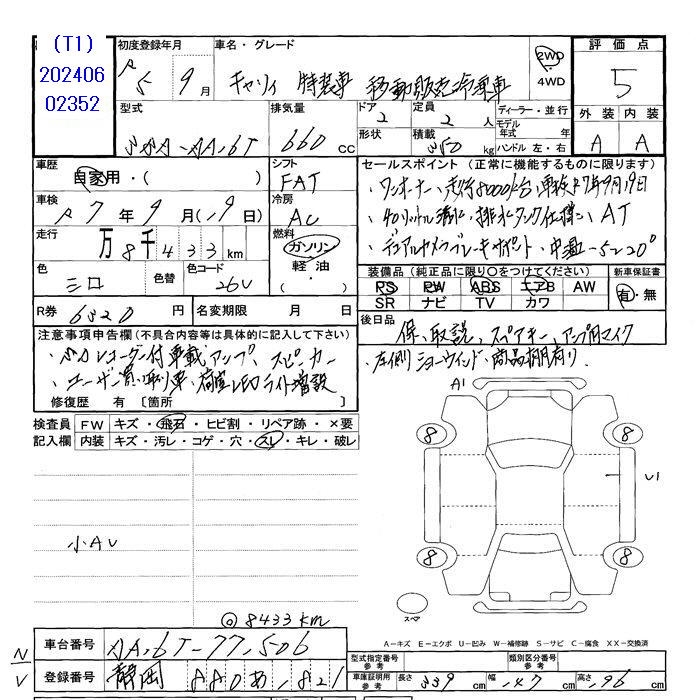 (T1)
202406
02352
初度登録年月
R5 9月
車名・グレード
キャリィ 特装車 移動販売冷凍車
2WD
4WD
評価点
5
外装 内装
A A
型式
排気量
660 cc
ドア
2
形状
定員
2人
積載
350 kg
ディーラー・並行
モデル
年式 年
ハンドル 左・右
車歴
自家用・( )
シフト
FAT
車検
R7年9月(19日)
冷房
AC
走行
万8千433km
燃料
ガソリン
軽油
色
色替
色コード
26U
セールスポイント (正常に機能するものに限ります)
・ワンオーナー、走行8000k台、車検R7年9月19日
装備品 (純正品に限り○をつけてください)
PS PW ABS エアB AW
SR ナビ TV カワ
新車保証書
有・無
R券 6320 円
名変期限 月 日
後日品
保、取説、スペアキー、アンプ用マイク
・左側ショーウィンド、商品棚有り
注意事項申告欄 (不具合内容等は具体的に記入して下さい)
・SDレコーダー付車載アンプ、スピーカー
・ユーザー買取り車・荷室LEDライト増設
修復歴 有 [箇所
検査員 FW キズ・飛石・ヒビ割・リペア跡・×要
記入欄 内装 キズ・汚レ・コゲ・穴・スレ・キレ・破レ
A1
8
8
U1
8
8
スペア
@8433km
A-キズ E-エクボ U-凹み W-補修跡 S-サビ C-腐食 XX-交換済
N/V
車台番号
登録番号 静岡 880 あ ・821
型式指定番号
参考
類別区分番号
参考
車庫証明用
参考
長さ 339 cm
幅 147 cm
高さ 196 cm